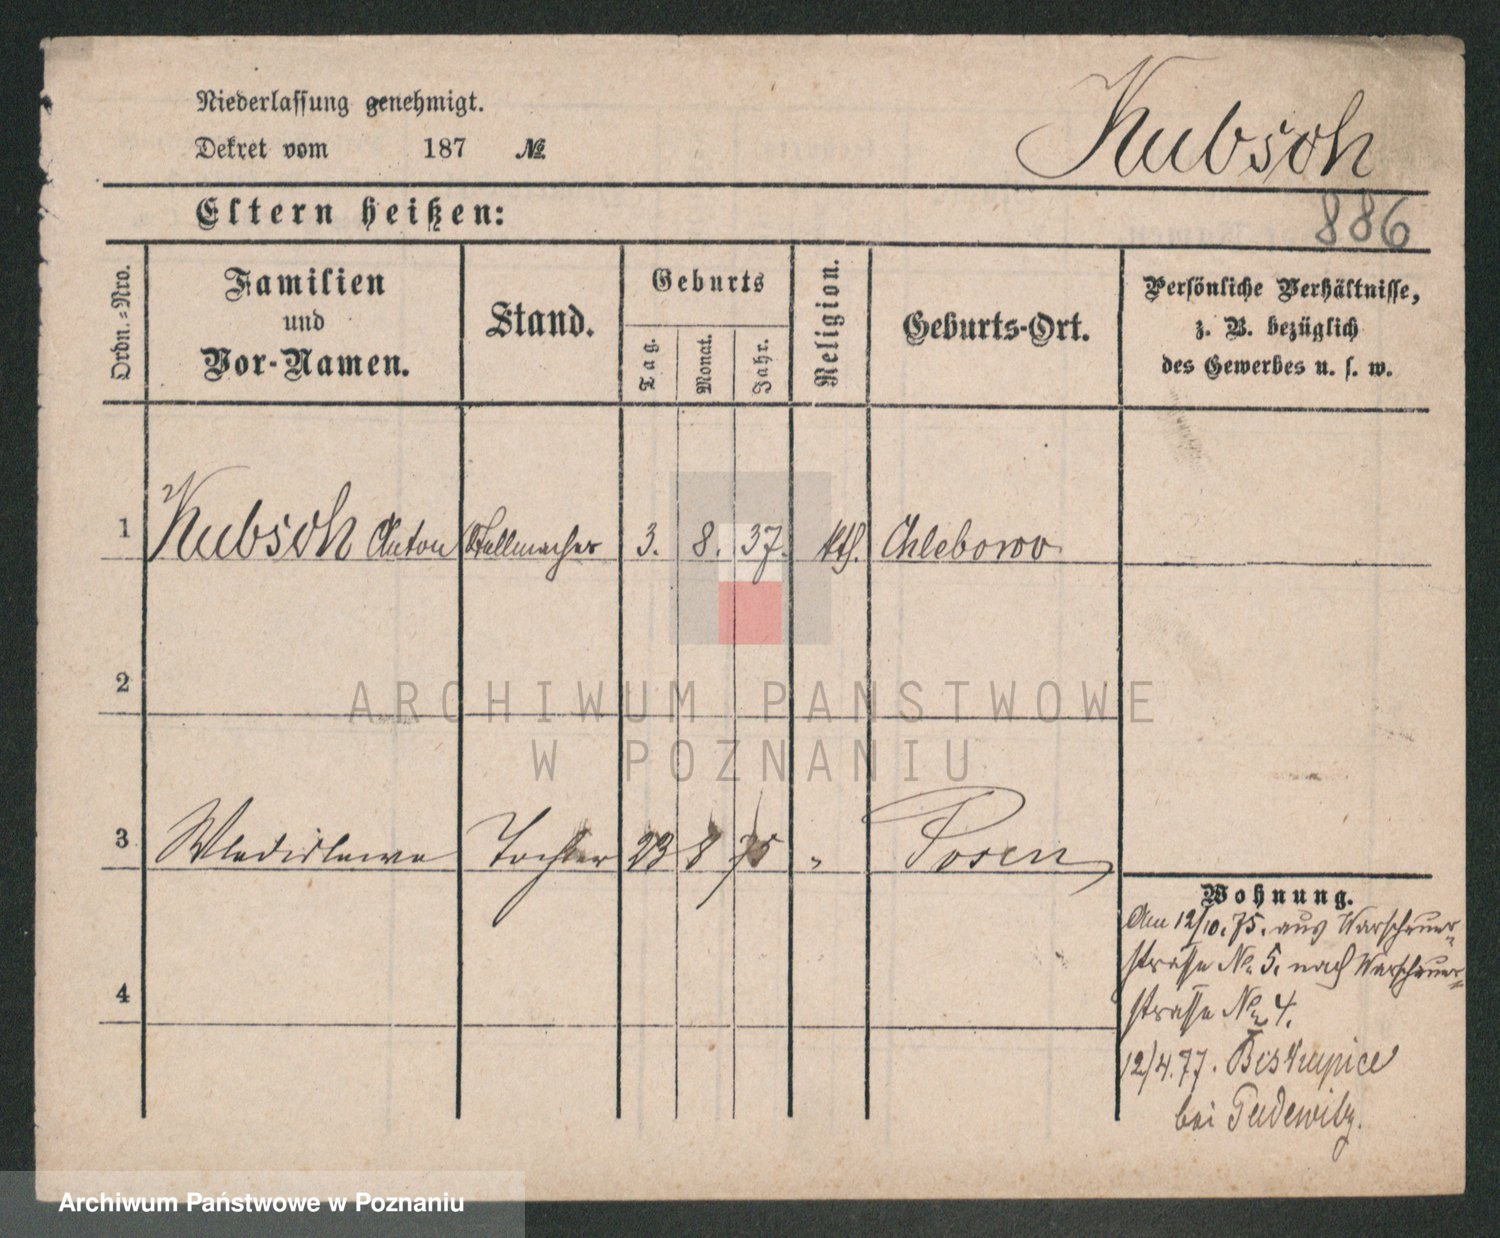 Niederlassung genehmigt.
Dekret vom 187 №
Kubsch
886
Eltern heißen:
Ordn.-Nro.
Familien
und
Vor-Namen.
Stand.
Geburts
Tag.
Monat.
Jahr.
Religion.
Geburts-Ort.
Persönliche Verhältnisse,
z. B. bezüglich
des Gewerbes u. s. w.
1 Kubsch Anton Stellmacher 3. 8. 37. kth. Chlebowo
2
ARCHIWUM PAŃSTWOWE
W POZNANIU
3 Wladislawa Tochter 23 8 75 " Posen
Wohnung.
Am 12/10. 75. aus Warschauer-
strasse No. 5. nach Warschauer-
strasse No. 4.
4
12/4. 77. Biskupice
bei Pudewitz.
Archiwum Państwowe w Poznaniu